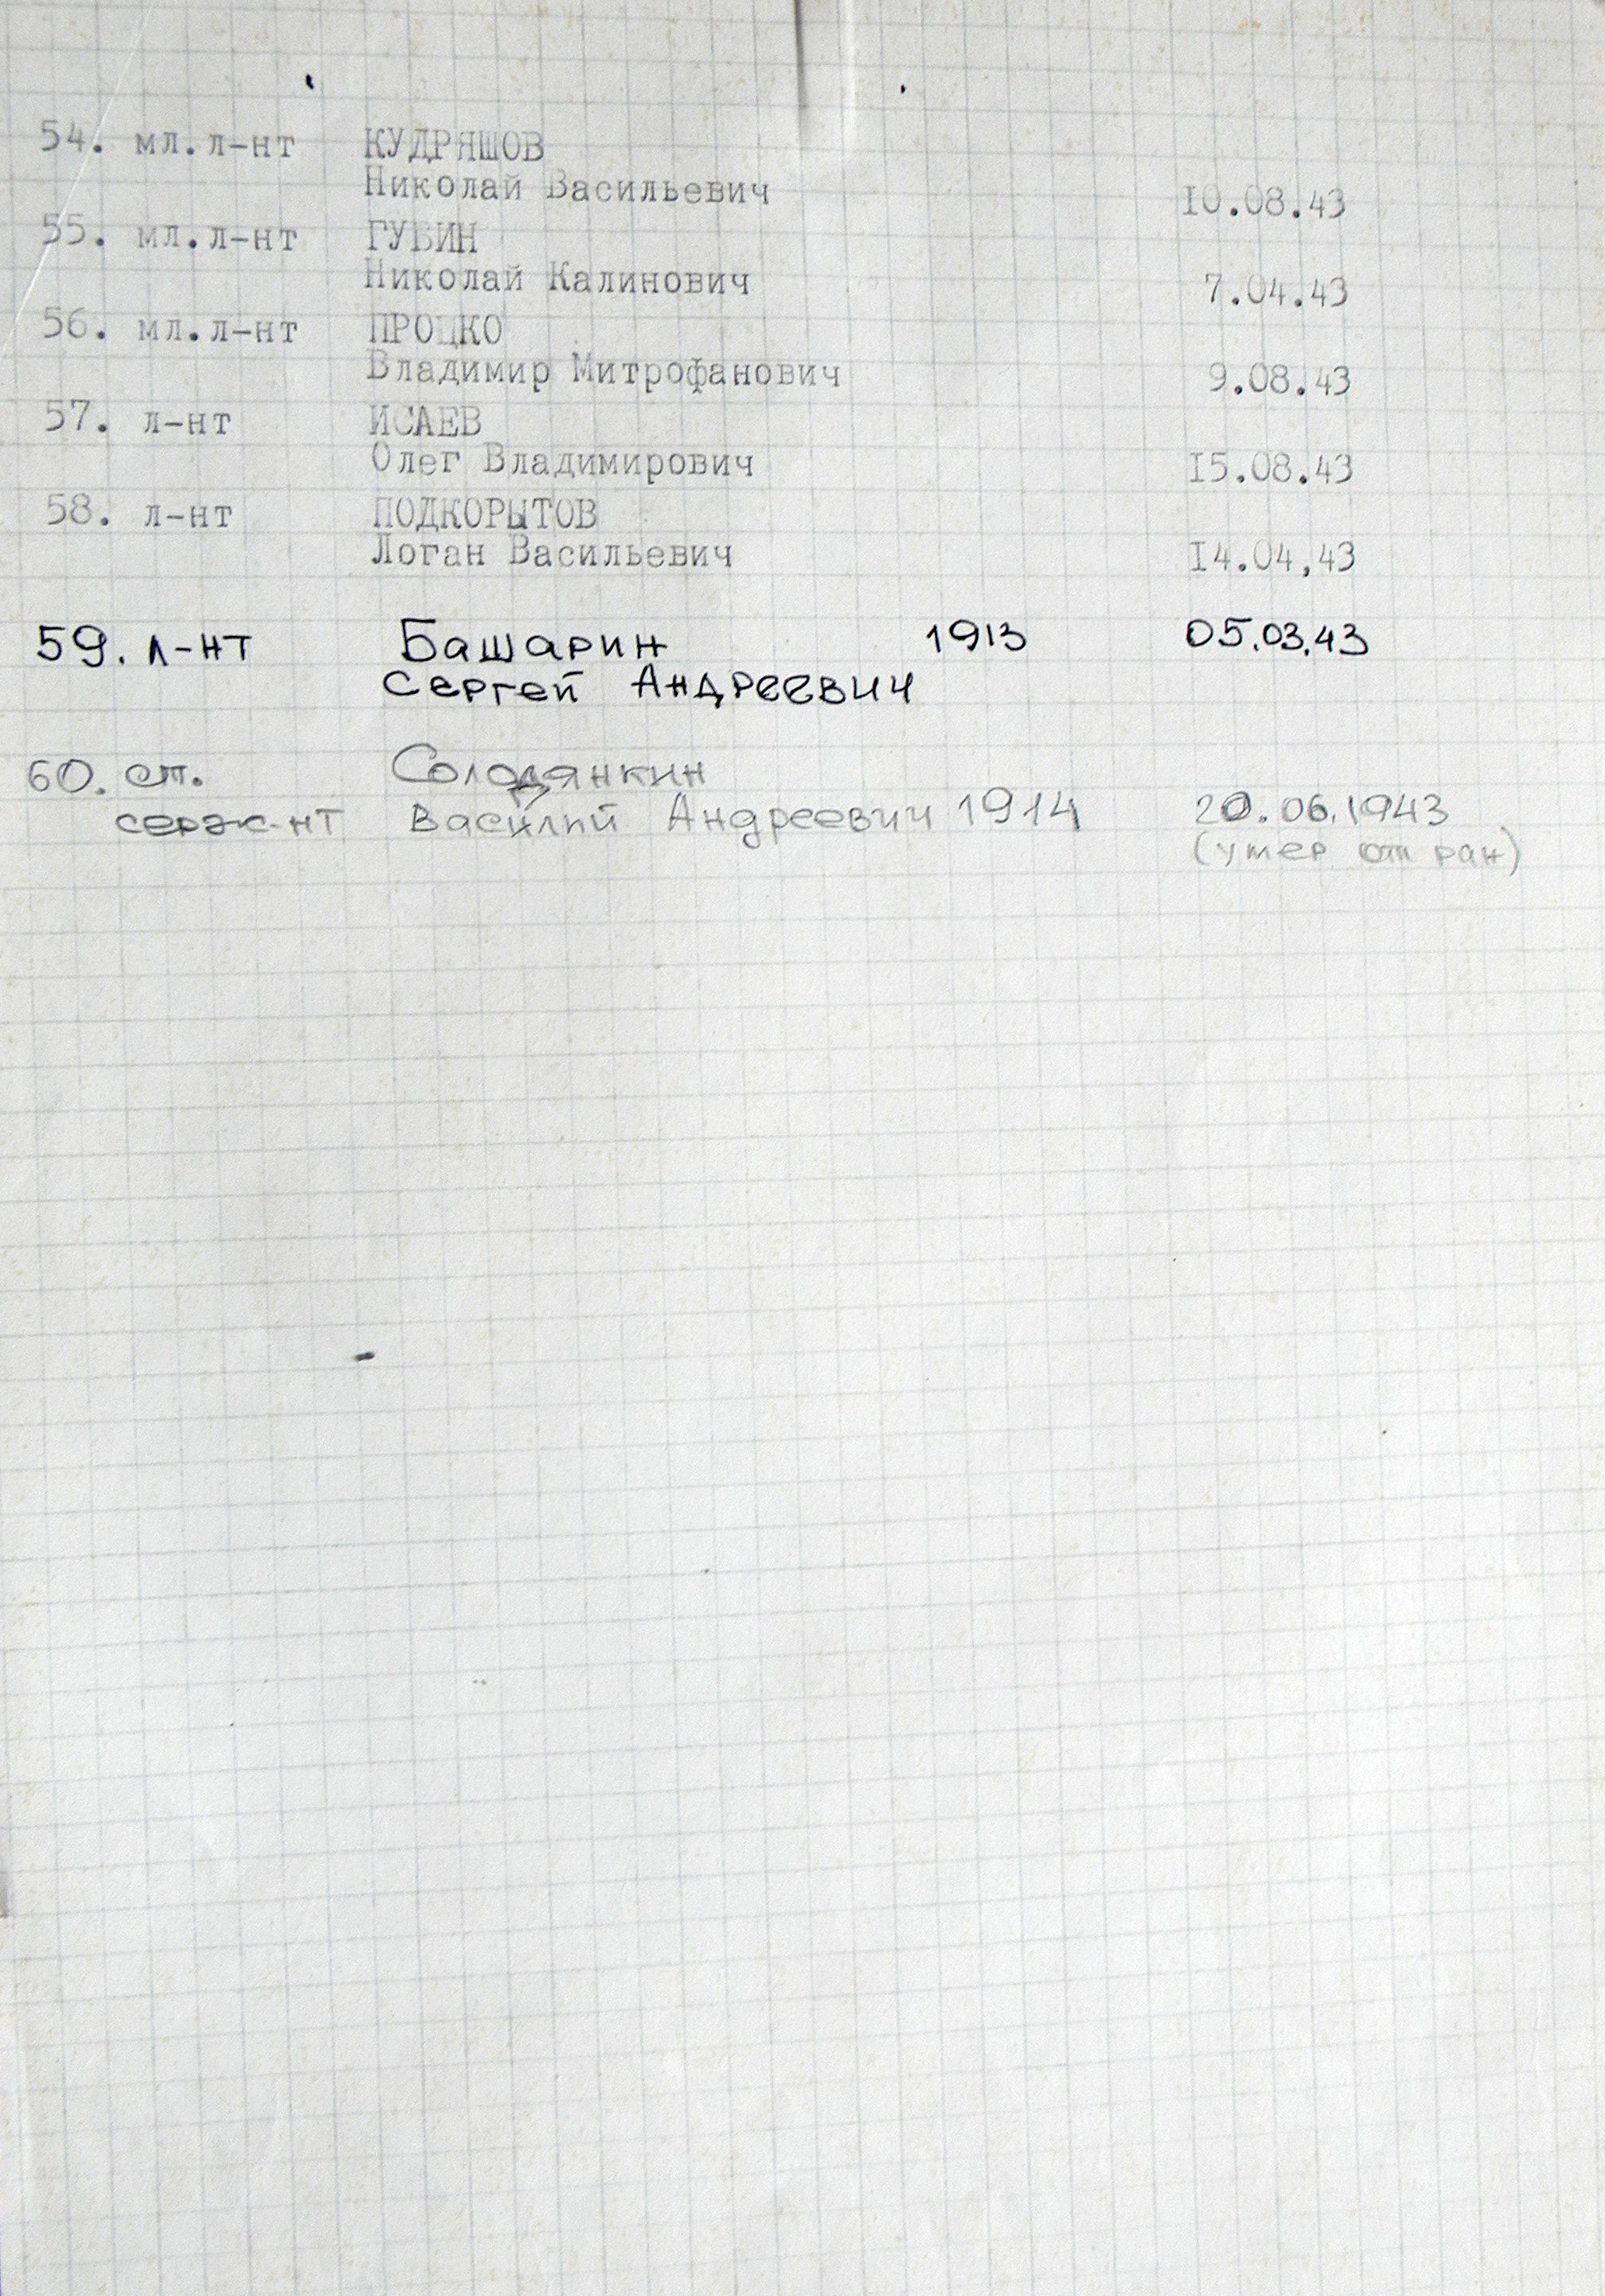 54. мл.л-нт КУДРЯШОВ
Николай Васильевич 10.08.43
55. мл.л-нт ГУБИН
Николай Калинович 7.04.43
56. мл.л-нт ПРОЦКО
Владимир Митрофанович 9.08.43
57. л-нт ИСАЕВ
Олег Владимирович 15.08.43
58. л-нт ПОДКОРЫТОВ
Логан Васильевич 14.04,43
59. л-нт Башарин 1913 05.03.43
Сергей Андреевич
60. ст. Солодянкин
серж-нт Василий Андреевич 1914 20.06.1943
(умер от ран)